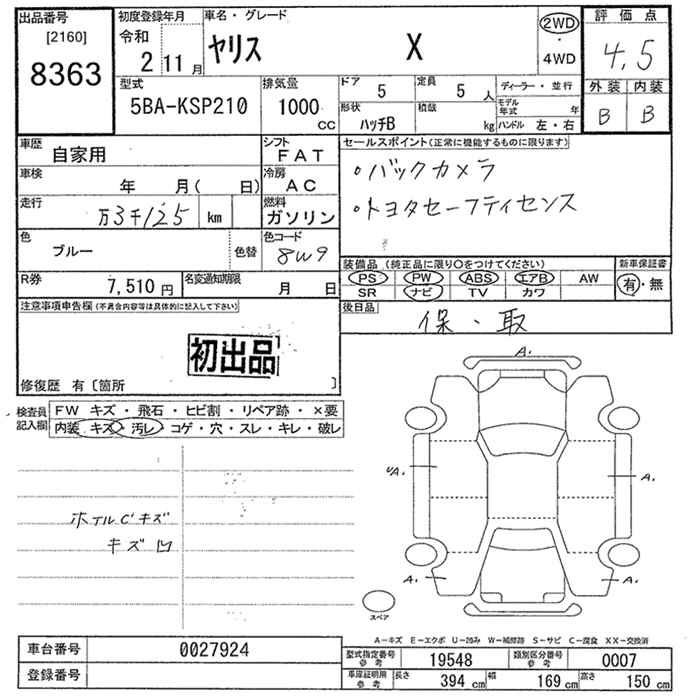 出品番号
[2160]
8363
初度登録年月
令和
2 11月
車名・グレード
ヤリス X
2WD
・
4WD
評価点
4.5
外装 内装
B B
型式
5BA-KSP210
排気量
1000 CC
ドア
5
定員
5 人
形状
ハッチB
積載
kg
ディーラー・並行
モデル年式 年
ハンドル 左・右
車歴
自家用
シフト
FAT
車検
年 月( 日)
冷房
AC
走行
万3千125 km
燃料
ガソリン
色
ブルー
色替
色コード
8W9
R券
7,510 円
名変通知期限
月 日
セールスポイント(正常に機能するものに限ります)
・バックカメラ
・トヨタセーフティセンス
装備品(純正品に限り○をつけてください)
PS PW ABS エアB AW
SR ナビ TV カワ
新車保証書
有・無
後日品
保・取
注意事項申告欄(不具合内容等は具体的に記入して下さい)
初出品
修復歴 有〔箇所 〕
検査員記入欄
FW キズ・飛石・ヒビ割・リペア跡・×要
内装 キズ・汚レ・コゲ・穴・スレ・キレ・破レ
ホイルC'キズ
キズ凹
A.
A.
A.
A.
A.
スペア
A-キズ E-エクボ U-凹み W-補修跡 S-サビ C-腐食 XX-交換済
車台番号 0027924
登録番号
型式指定番号参考 19548
類別区分番号参考 0007
車庫証明用参考 長さ 394 cm 幅 169 cm 高さ 150 cm